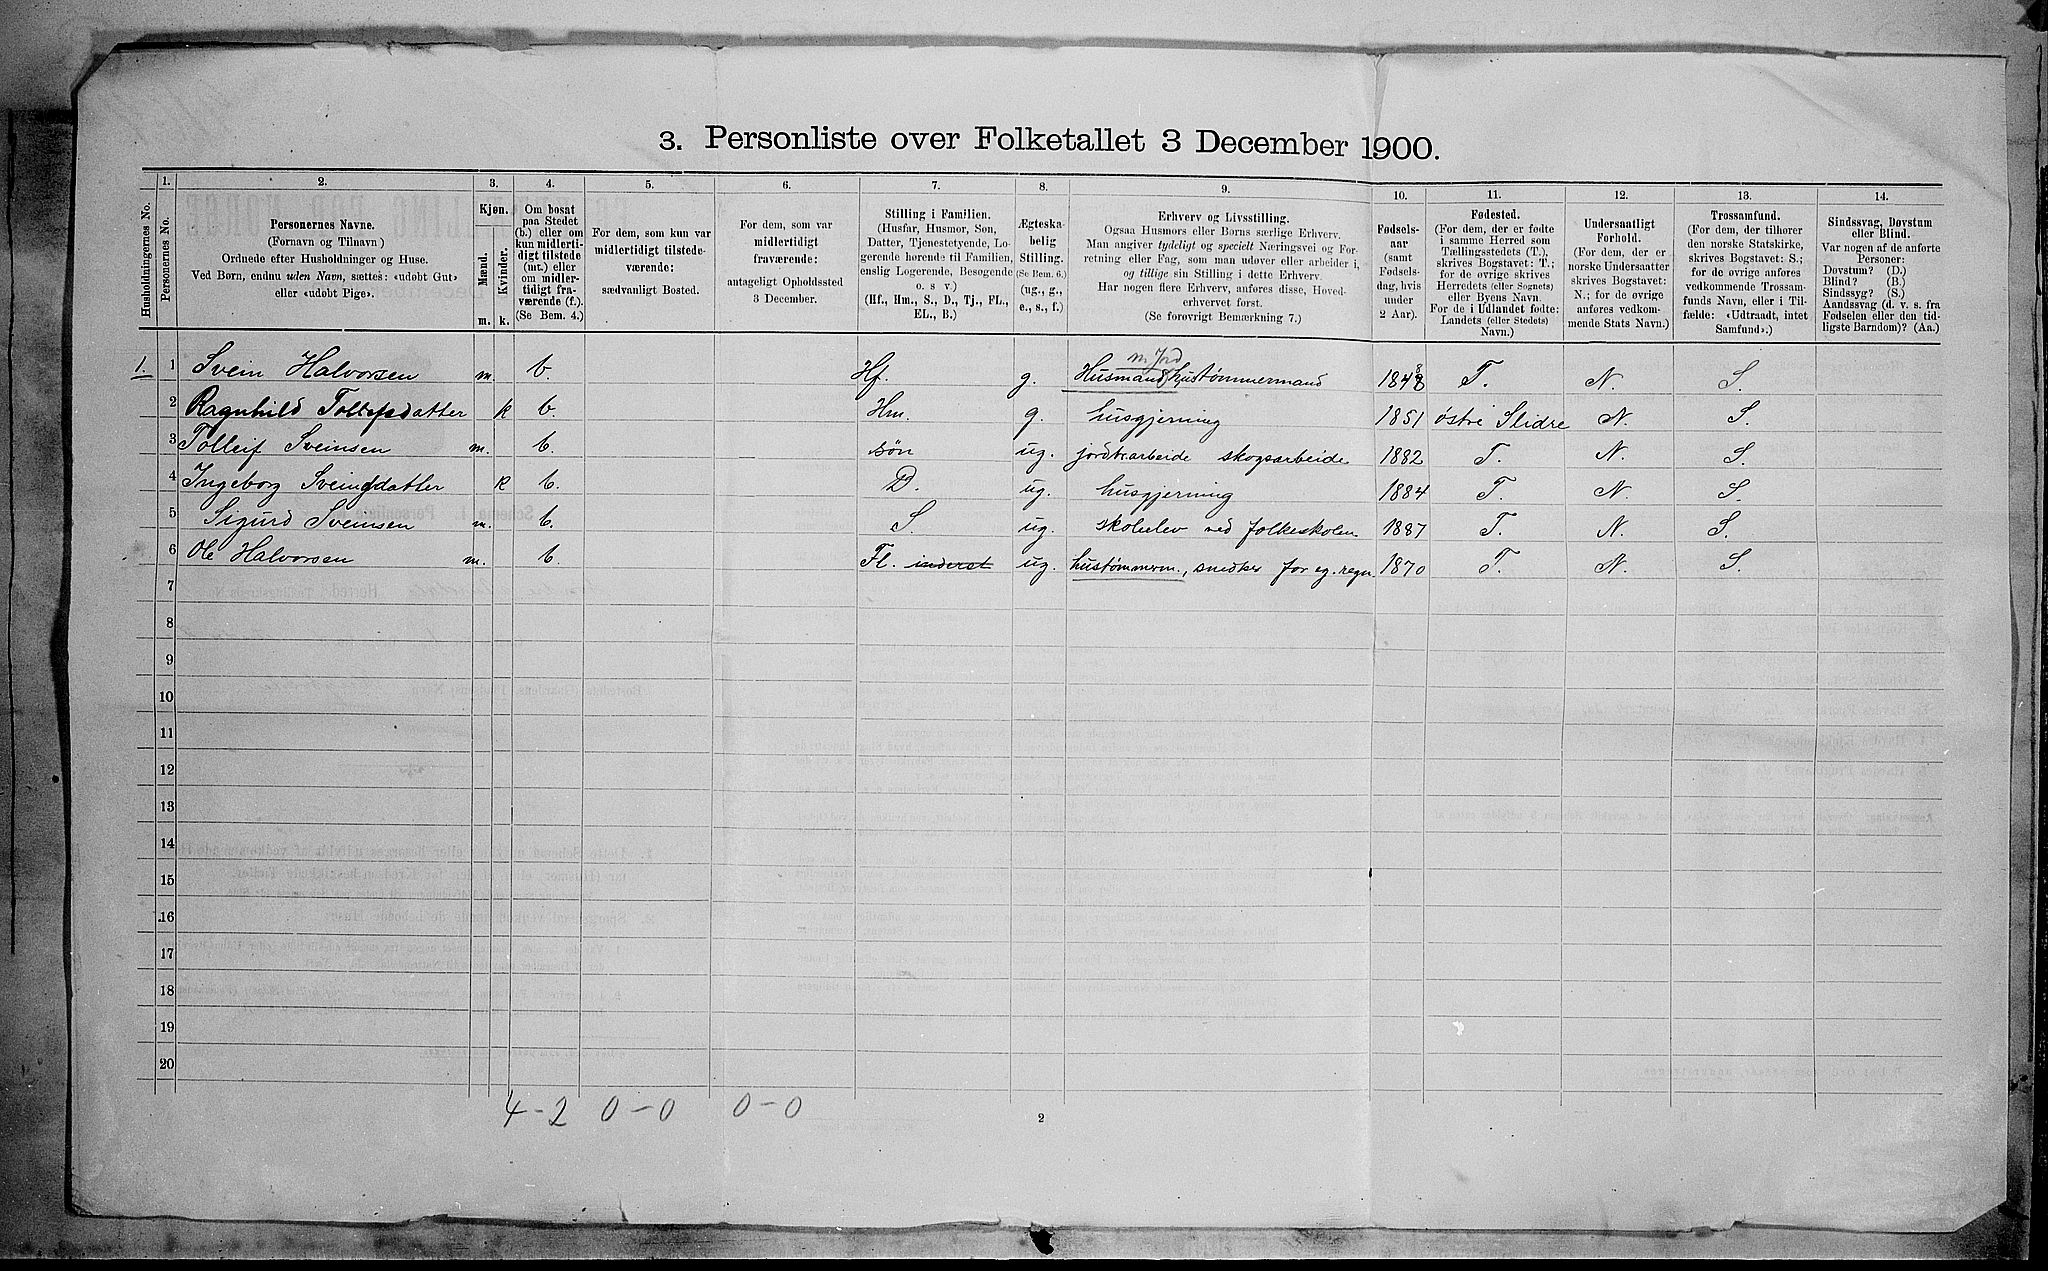 3. Personliste over Folketallet 3 December 1900.
1. 2. 3. 4. 5. 6. 7. 8. 9. 10. 11. 12. 13. 14.
Husholdningernes No.
Personernes No.
Personernes Navne.
(Fornavn og Tilnavn)
Ordnede efter Husholdninger og Huse.
Ved Børn, endnu uden Navn, sættes: «udøbt Gut»
eller «udøbt Pige».
Kjøn.
Mænd.
Kvinder.
m. k.
Om bosat
paa Stedet
(b.) eller om
kun midlerti-
digt tilstede
(mt.) eller
om midler-
tidigt fra-
værende (f.).
(Se Bem. 4.)
For dem, som kun var
midlertidigt tilstede-
værende:
sædvanligt Bosted.
For dem, som var
midlertidigt
fraværende:
antageligt Opholdssted
3 December.
Stilling i Familien.
(Husfar, Husmor, Søn,
Datter, Tjenestetyende, Lo-
gerende hørende til Familien,
enslig Logerende, Besøgende
o. s v.)
(Hf., Hm., S., D., Tj., FL.,
EL., B.)
Ægteska-
belig
Stilling.
(Se Bem. 6.)
(ug., g.,
e., s., f.)
Erhverv og Livsstilling.
Ogsaa Husmors eller Børns særlige Erhverv.
Man angiver tydeligt og specielt Næringsvei og For-
retning eller Fag, som man udøver eller arbeider i,
og tillige sin Stilling i dette Erhverv.
Har nogen flere Erhverv, anføres disse, Hoved-
erhvervet først.
(Se forøvrigt Bemærkning 7.)
Fødsels-
aar
(samt
Fødsels-
dag, hvis
under
2 Aar).
Fødested.
(For dem, der er fødte
i samme Herred som
Tællingsstedets (T.),
skrives Bogstavet: T.;
for de øvrige skrives
Herredets (eller Sognets)
eller Byens Navn.
For de i Udlandet fødte:
Landets (eller Stedets)
Navn.)
Undersaatligt
Forhold.
(For dem, der er
norske Undersaatter
skrives Bogstavet:
N.; for de øvrige
anføres vedkom-
mende Stats Navn.)
Trossamfund.
(For dem, der tilhører
den norske Statskirke,
skrives Bogstavet: S.;
for de øvrige anføres
vedkommende Trossam-
funds Navn, eller i Til-
fælde: «Udtraadt, intet
Samfund».)
Sindssvag, Døvstum
eller Blind.
Var nogen af de anførte
Personer:
Døvstum? (D.)
Blind? (B.)
Sindssyg? (S.)
Aandssvag (d. v. s. fra
Fødselen eller den tid-
ligste Barndom)? (Aa.)
m. Jord
1. 1 Svein Halvorsen m. b. Hf. g. Husmand hustømmermand 1848 T. N. S.
2 Ragnhild Tollefsdatter k b. Hm. g. husgjerning 1851 østre Slidre N. S.
3 Tolleif Sveinsen m. b. søn ug. jordbrarbeide skogsarbeide 1882 T. N. S.
4 Ingeborg Sveinsdatter k b. D. ug. husgjerning 1884 T. N. S.
5 Sigurd Sveinsen m. b. S. ug. skoleelev ved folkeskolen 1887 T. N. S.
6 Ole Halvorsen m. b. Fl. inderst ug. hustømmerm., snedker for eg. regn. 1870 T. N. S.
7
8
9
10
11
12
13
14
15
16
17
18
19
20
4-2 0-0 0-0
2